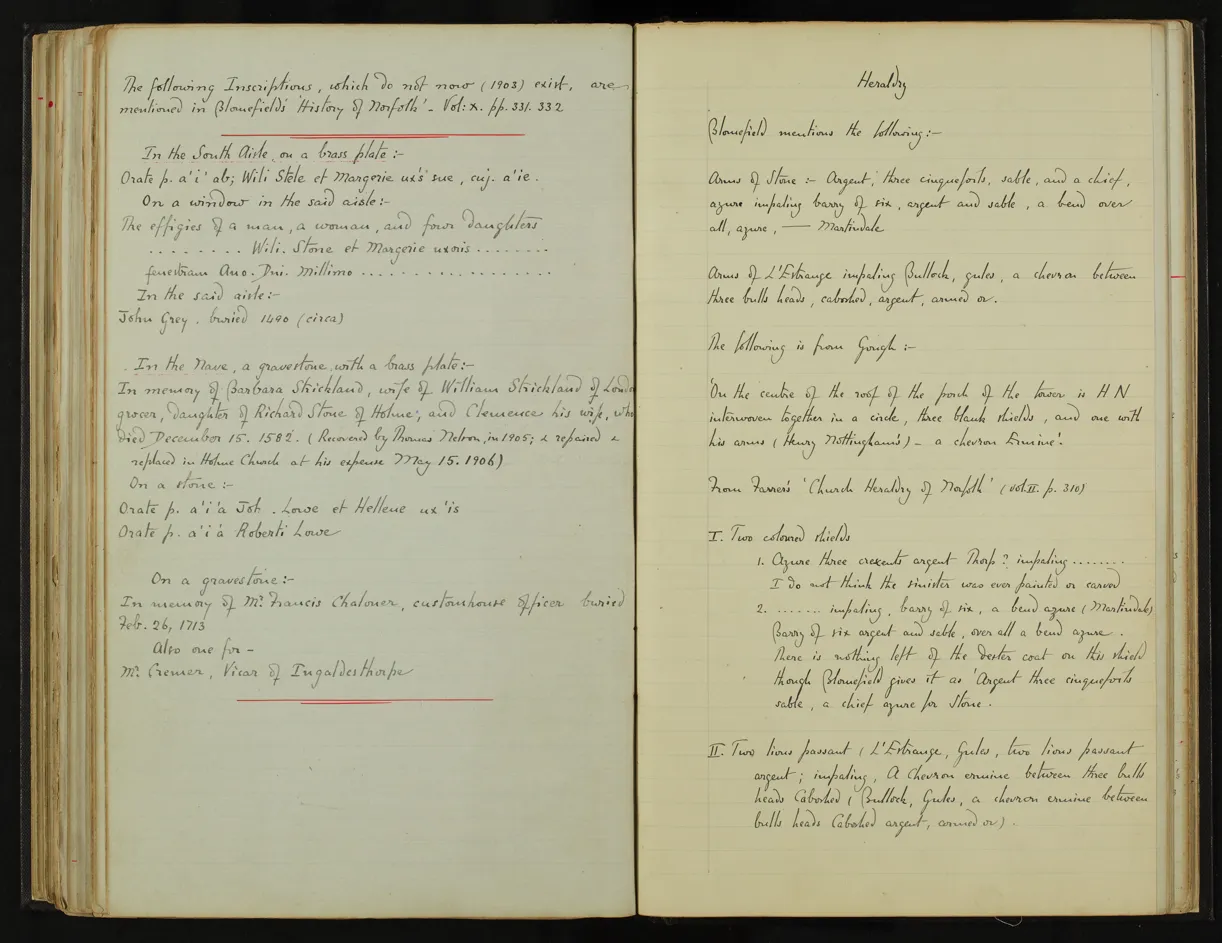 The following Inscriptions, which do not now (1903) exist, are
mentioned in Blomefield's 'History of Norfolk' - Vol: X. pp. 331. 332
In the South Aisle, on a brass plate :-
Orate p. a'i' ab; Wili Stele et Margerie ux's' sue, cuj. a'ie.
On a window in the said aisle :-
The effigies of a man, a woman, and four daughters
. . . . . . . . Wili. Stone et Margerie uxoris . . . . . . . .
fenestram Ano. Dni. Millimo . . . . . . . . . . . . . . . .
In the said aisle :-
John Grey . buried 1490 (circa)
. In the Nave, a gravestone, with a brass plate :-
In memory of Barbara Strickland, wife of William Strickland of Londo
grocer, daughter of Richard Stone of Holme; and Clemence his wife, who
died December 15. 1582. (Recovered by Thomas Nelson, in 1905; & repaired &
replaced in Holme Church at his expense May 15. 1906)
On a stone :-
Orate p. a'i'a Joh . Lowe et Hellene ux'is
Orate p. a'i'a Roberti Lowe
On a gravestone :-
In memory of Mr. Francis Chaloner, customhouse officer buried
Feb. 26, 1713
Also one for -
Mr. Cremer, Vicar of Ingaldesthorpe
Heraldry
Blomefield mentions the following :-
Arms of Stone :- Argent, three cinquefoils, sable, and a chief,
azure impaling barry of six, argent and sable, a bend over
all, azure, — Martindale
Arms of L'Estrange impaling Bullock, gules, a chevron between
three bulls heads, caboshed, argent, armed or.
The following is from Gough :-
'On the centre of the roof of the porch of the tower is H N
interwoven together in a circle, three blank shields, and one with
his arms (Henry Nottingham's) - a chevron Ermine'.
From Farrer's 'Church Heraldry of Norfolk' (vol. II. p. 310)
I. Two coloured shields
1. Azure three crexents argent Thorp? impaling ........
I do not think the sinister was ever painted or carved
2. ....... impaling, barry of six, a bend azure (Martindale)
Barry of six argent and sable, over all a bend azure.
There is nothing left of the dexter coat on this shield
though Blomefield gives it as 'Argent three cinquefoils
sable, a chief azure for Stone.
II. Two lions passant (L'Estrange, Gules, two lions passant
argent; impaling, A Chevron ermine between three bulls
heads Caboshed (Bullock, Gules, a chevron ermine between
bulls heads Caboshed argent, armed or).